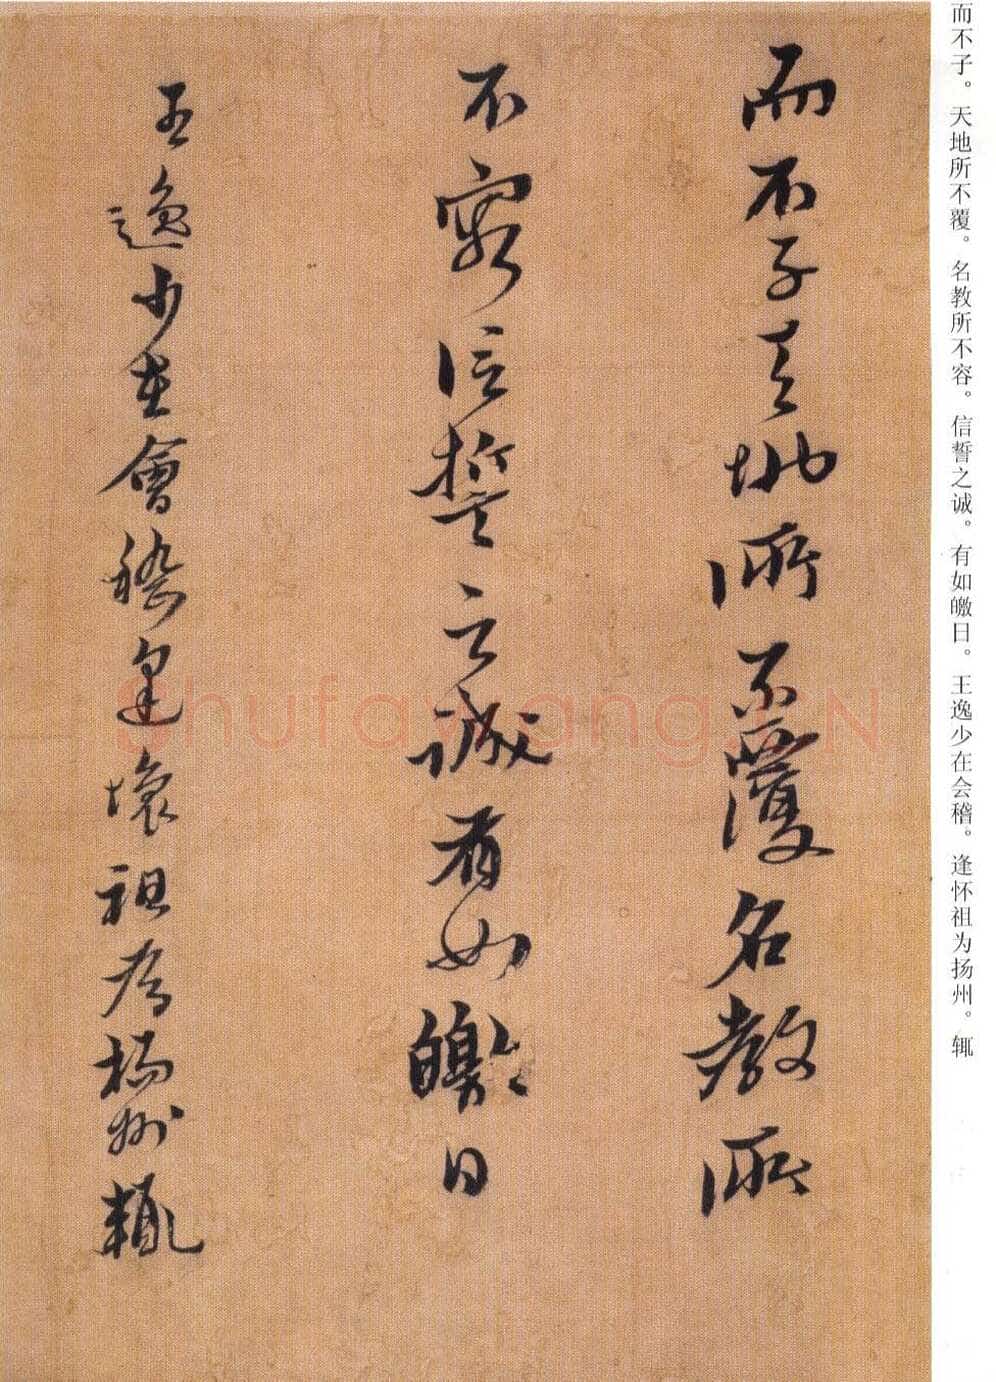 而不子。天地所不覆。名教所不容。信誓之诚。有如皦日。王逸少在会稽。逢怀祖为扬州。辄
而不子天地所不覆名教所
不容信誓之誠有如皦日
王逸少在會稽逢懷祖為揚州輒
Shufawang.CN